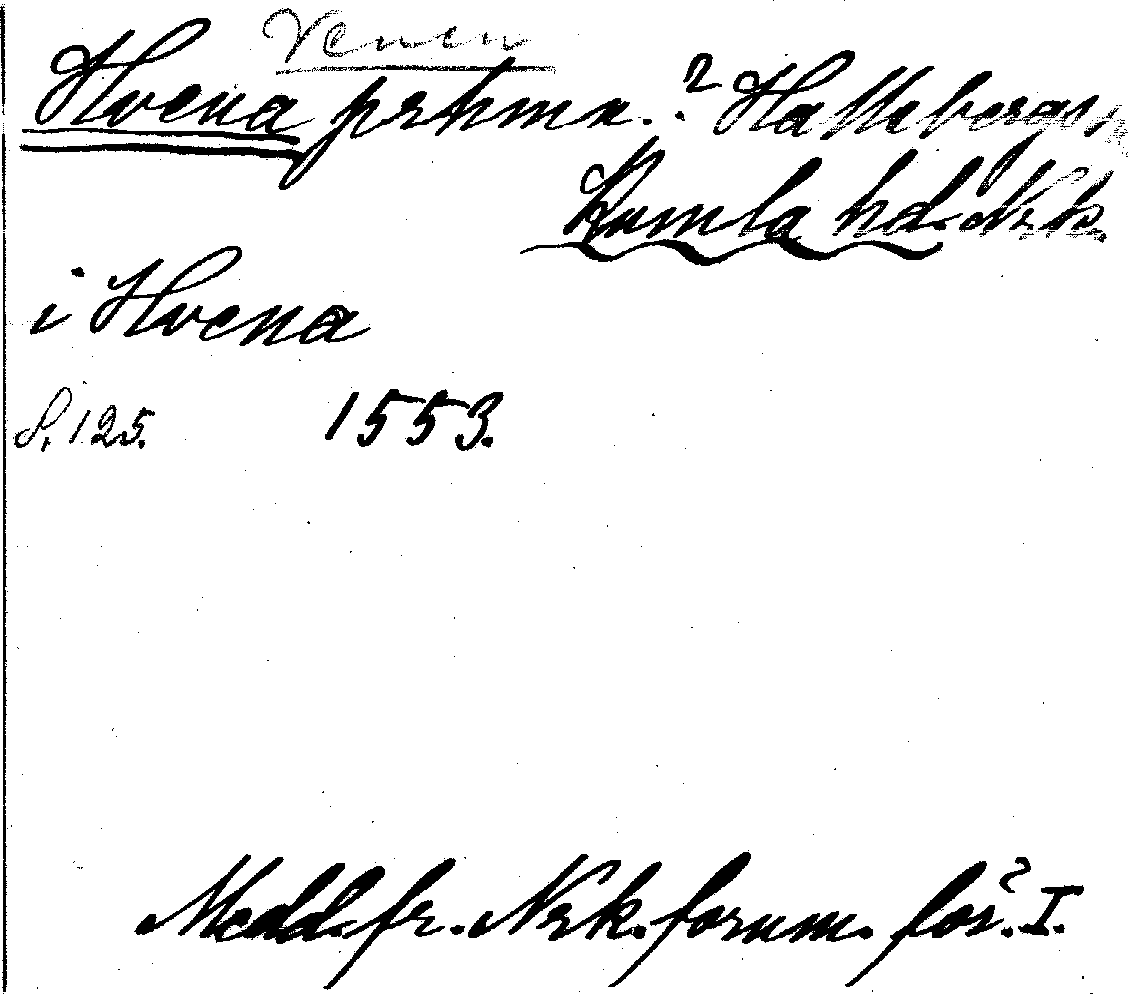 Venen
Hvena prhmn. ? Hallsbergs sn
Kumla hd. Nrk.
i Hvena
S. 125. 1553.
Medd. fr. Nrk. fornm. för. I.